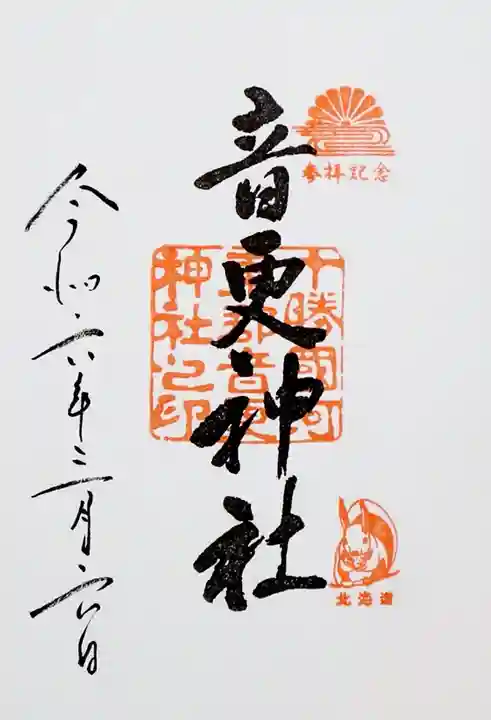 参拝記念
音更神社
十勝國河
東郡音更
神社之印
北海道
令和六年三月六日